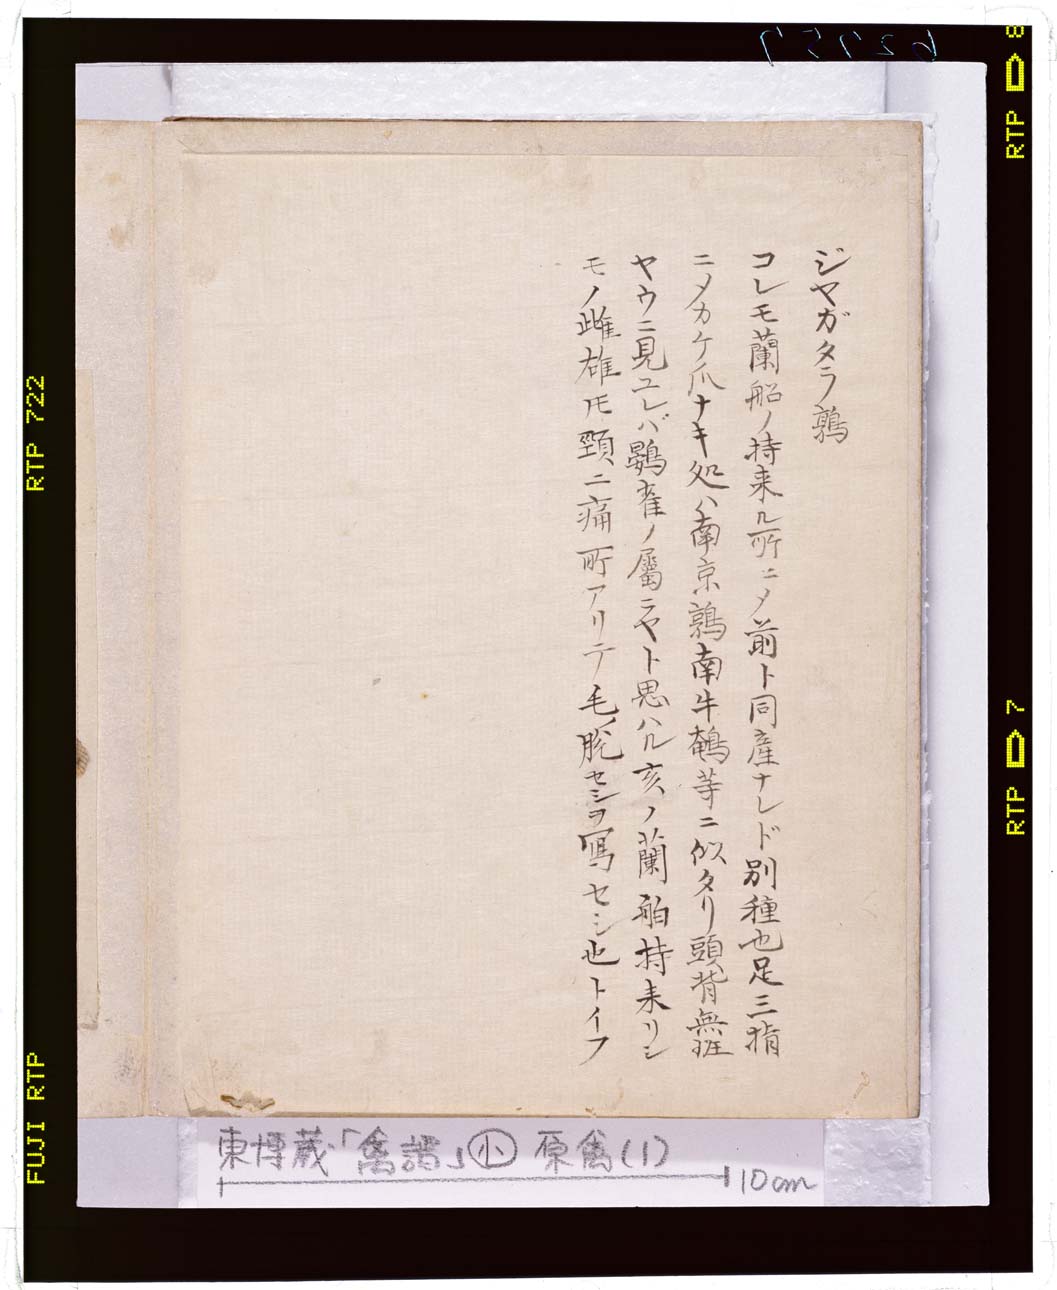 ジヤガタラ鶉
コレモ蘭船ノ持来ル所ニメ前ト同産ナレド別種也足三指
ニメカケ爪ナキ処ハ南京鶉南牛鵪等ニ似タリ頭背無斑
ヤウニ見ユレバ鷃雀ノ屬ニヤト思ハル亥ノ蘭舶持来リシ
モノ雌雄ﾓ頸ニ痛所アリテ毛ノ脱セシヲ寫セシ也トイフ
東博蔵「禽譜」小 原禽(1)
10cm
62757
RTP 722
FUJI RTP
8
RTP
7
RTP